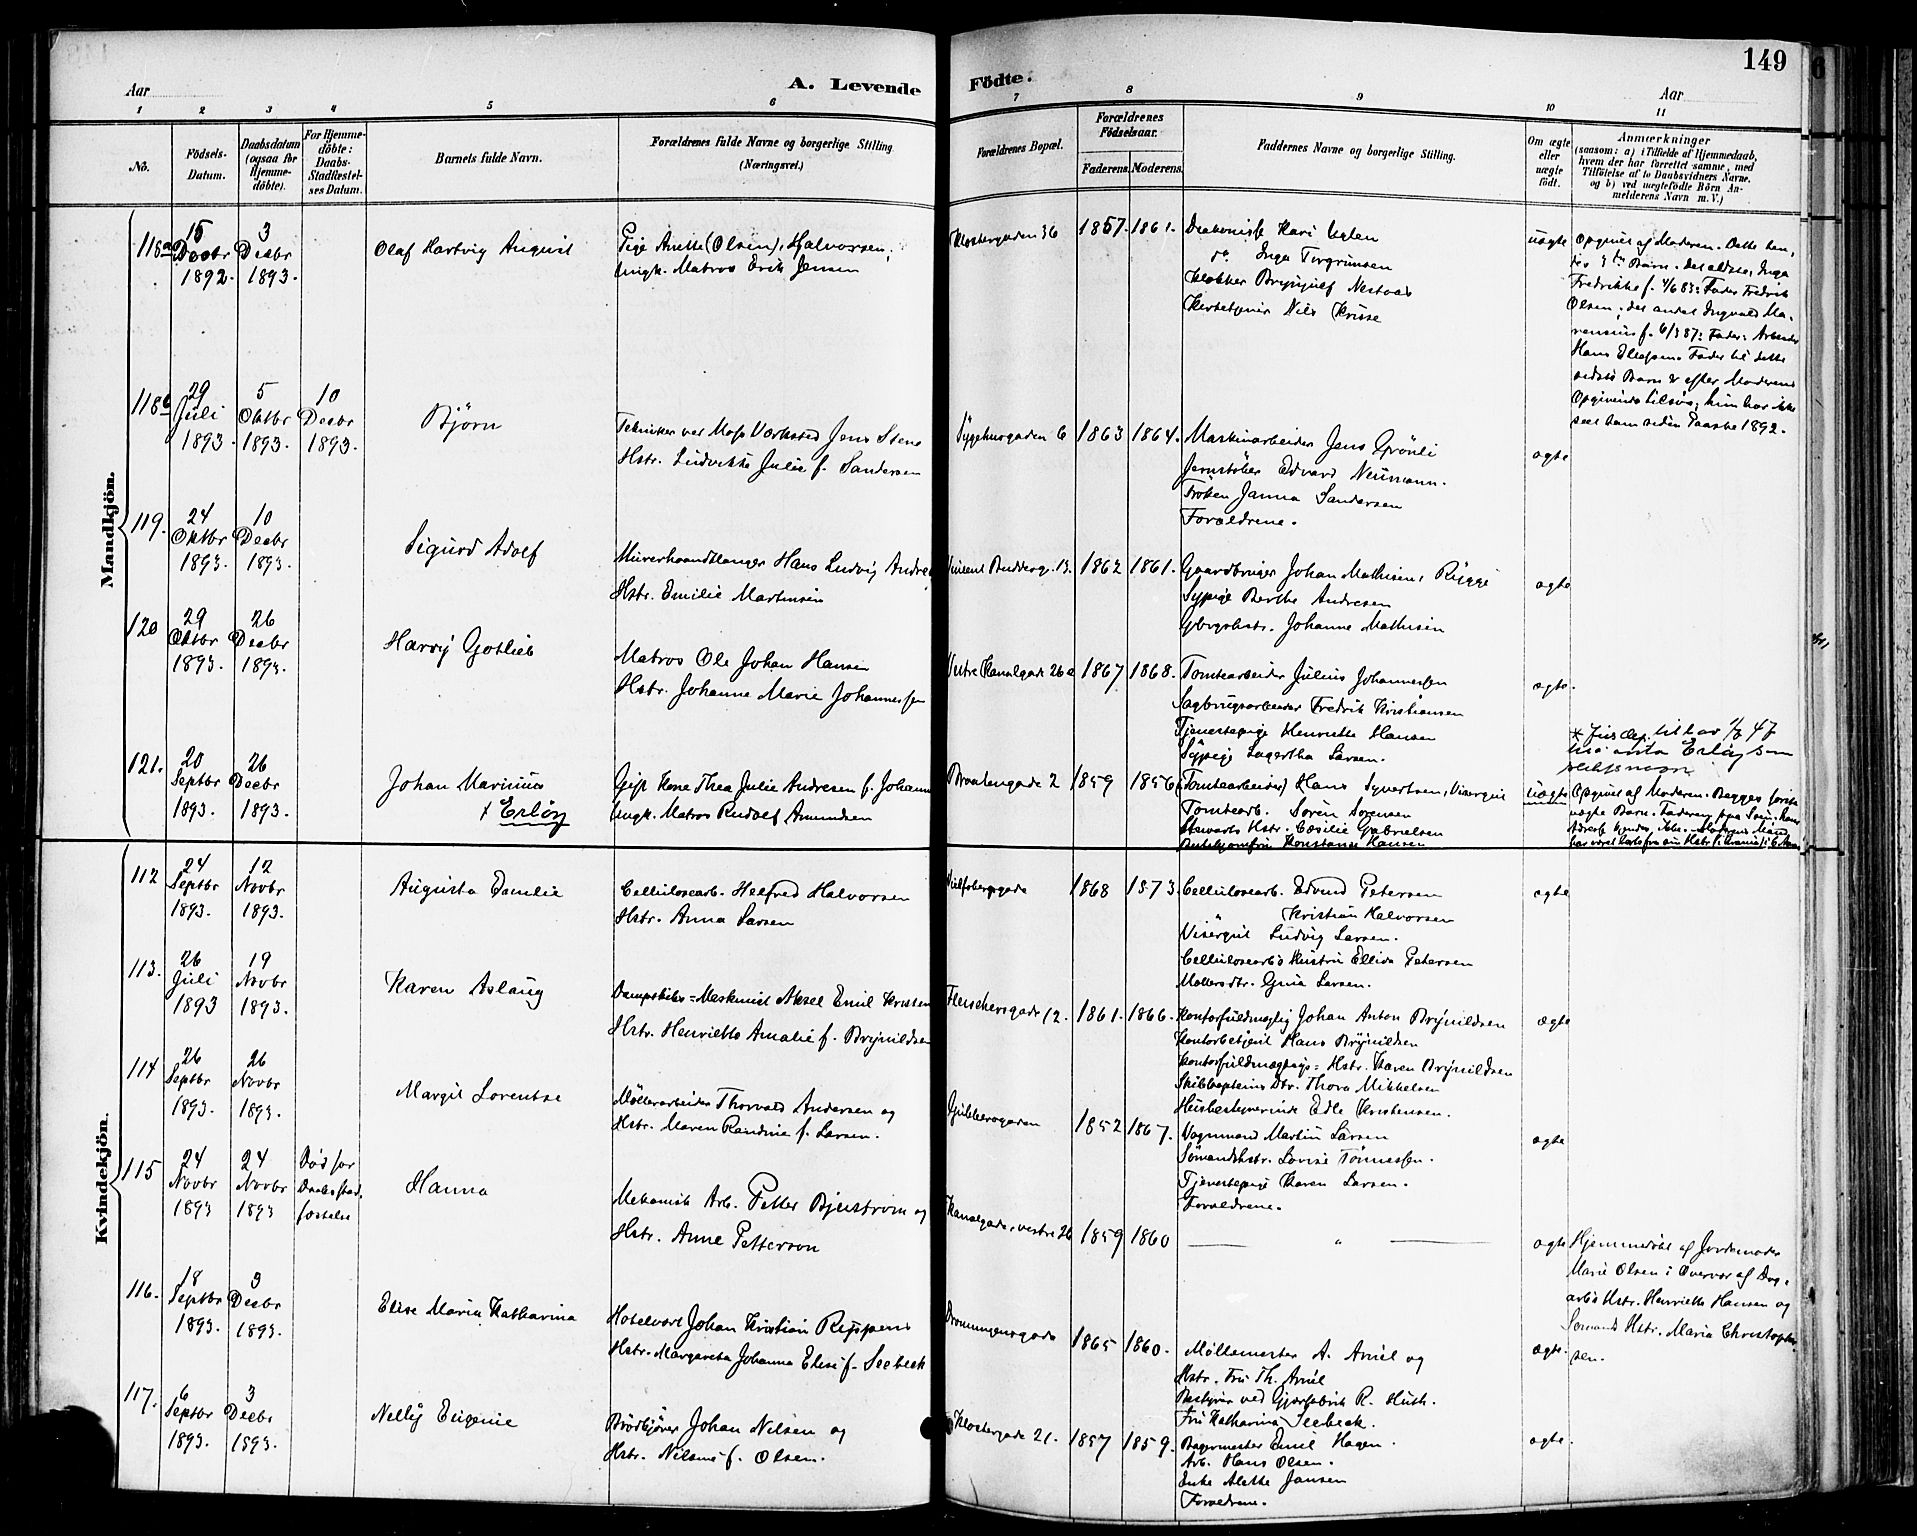 149
A. Levende
Födte.
Aar
Aar
1 2 3 4 5 6 7 8 9 10 11
No.
Födsels-
Datum.
Daabsdatum
(ogsaa for
Hjemme-
döbte).
For Hjemme-
döbte:
Daabs-
Stadfæstel-
ses Datum.
Barnets fulde Navn.
Forældrenes fulde Navne og borgerlige Stilling
(Næringsvei.)
Forældrenes Bopæl.
Forældrenes
Födselsaar.
Faderens.
Moderens.
Faddernes Navne og borgerlige Stilling.
Om ægte
eller
uægte
födt.
Anmærkninger
(saasom: a) i Tilfælde af Hjemmedaab,
hvem der har forrettet samme, med
Tilföielse af to Daabsvidners Navne,
og b) ved uægtefödte Börn An-
melderens Navn m.V.)
Mandkjön.
118a
15
Decbr
1892.
3
Decbr
1893.
Olaf Hartvig August
Pige Anette (Olsen) Halvorsen,
Ungk. Matros Erik Jensen
Klostergaden 36
1857. 1861.
Diakonisse Kari Uglen
do Inga Torgrimsen
Klokker Brynjulf Nestaas
Kirkebetjener Nils Krisse
uægte
Opgivet af Moderen. Dette hen,
des 3die Barn. Det ældste, Inga
Fredrikke f. 4/6 83: Fader Fredrik
Olsen; det andet Ingvald Ma,
rensius f. 6/3 87: Fader: Arbeider
Hans Ellefsen. Fader til dette
sidste Barn er efter Moderens
Opgivende tilsøs; hun har ikke
seet ham siden Paaske 1892.
118b
29
Juli
1893.
5
Oktbr
1893.
10
Decbr
1893.
Bjørn
Tekniker ved Moss Værksted Jens Steen
Hstr. Ludvikke Julie f. Sandersen
Sygehusgaden 6
1863 1864.
Maskinarbeider Jens Grönli
Jernstöber Edvard Neumann.
Fröken Janna Sandersen
Forældrene.
ægte
119.
24
Oktbr
1893.
10
Decbr
1893.
Sigurd Adolf
Murerhaandlanger Hans Ludvig Andre
Hstr. Emilie Martinsen
Vincent Buddesg. 13.
1862 1861.
Gaardbruger Johan Mathisen, Rygge
Sypige Berthe Andresen
Gbrgerhstr. Johanne Mathisen
ægte
120
29
Oktbr
1893.
26
Decbr
1893.
Harry Gotlieb
Matros Ole Johan Hansen
Hstr. Johanne Marie Johannessen
Vestre Kanalgade 26a
1867 1868.
Tomtearbeider Julius Johannessen
Sagbrugsarbeider Fredrik Kristiansen
Tjenestepige Henriette Hansen
Sypige Lagertha Larsen.
ægte.
121.
20
Septbr
1893.
26
Decbr
1893.
Johan Marinius
x Erlöy
Gift Kone Thea Julie Andresen f. Johann
Ungk. Matros Rudolf Amundsen
Braatengade 2
1859 1856
(Tomtearbeider) Hans Syvertsen, Visergut
Tomtearb. Sören Sörensen
Stewarts Hstr. Cæsilie Gabrielsen
Konstanse Hansen
uægte
* Jusdep. till. av 1/8 47
til å anta Erlöy som
slektsnavn
Opgivet af Moderen. Begges förste
uægte Barn. Faderen paa Söen, hans
Adresse kjendes ikke. Moderens Mand
har været borte fra sin Hstr. i 6 Aar
Kvindekjön.
112
24
Septbr
1893.
12
Novbr
1893.
Augusta Emilie
Cellulosearb. Helfred Halvorsen
Hstr. Anna Larsen
1868 1873.
Cellulosearb. Edvind Petersen
Kristian Halvorsen
Visergut Ludvig Larsen.
Cellulosearb's Hustru Ellida Petersen
Möllers dtr. Gina Larsen.
ægte
113.
26
Juli
1893
19
Novbr
1893.
Karen Aslaug
Dampskibs-Maskinist Aksel Emil Kristen
Hstr. Henriette Amalie f. Brynildsen
Fleischersgade 12.
1861. 1866.
Kontorfuldmægtig Johan Anton Brynildsen
Kontorbetjent Hans Brynildsen
Kontorfuldmægtigs-Hstr. Karen Brynildsen
Skibkapteins Dtr. Thora Mikkelsen
Husbestyrerinde Edle Kristensen.
ægte
114
26
Septbr
1893.
26
Novbr
1893.
Margit Lorentse
Möllerarbeider Thorvald Andersen og
Hstr. Maren Randine f. Larsen.
Gubberogaden
1852 1867.
Vognmand Martin Larsen
Sömandshstr. Lovise Tönnessen.
Tjenestepige Karen Larsen.
Forældrene.
ægte
115
24
Novbr
1893
24
Novbr
1893
Död før
Daabsstad,
fæstelse
Hanna
Mekanisk Arb. Petter Bjerström og
Hstr. Anne Petterson
Kanalgade, vestre 26
1859 1860
— " —
ægte
Hjemmedöbt af Jordemoder
Marie Olsen i Overvær af Dag,
arb's Hstr. Henriette Hansen og
Sömands Hstr. Maria Christophe,
sen.
116.
18
Septbr
1893.
3
Decbr
1893.
Elise Maria Katharina
Hotelvært Johan Kristian Rippens
Hstr. Margareta Johanna Elise f. Seebeck
Dronningensgade
1865 1860.
Möllemester A. Amél og
Hstr. Fru Th. Amél
Bestyrer ved Gjærfabrik R. Huth.
Fru Katharina Seebeck.
ægte.
117.
6
Septbr
1893.
3
Decbr
1893.
Nelly Eugenie
Brödkjörer Johan Nilsen og
Hstr. Nilsine f. Olsen.
Klostergade 21.
1857 1859.
Bagermester Emil Hagen.
Arb. Hans Olsen.
Enke Alette Jansen
Forældrene.
ægte.